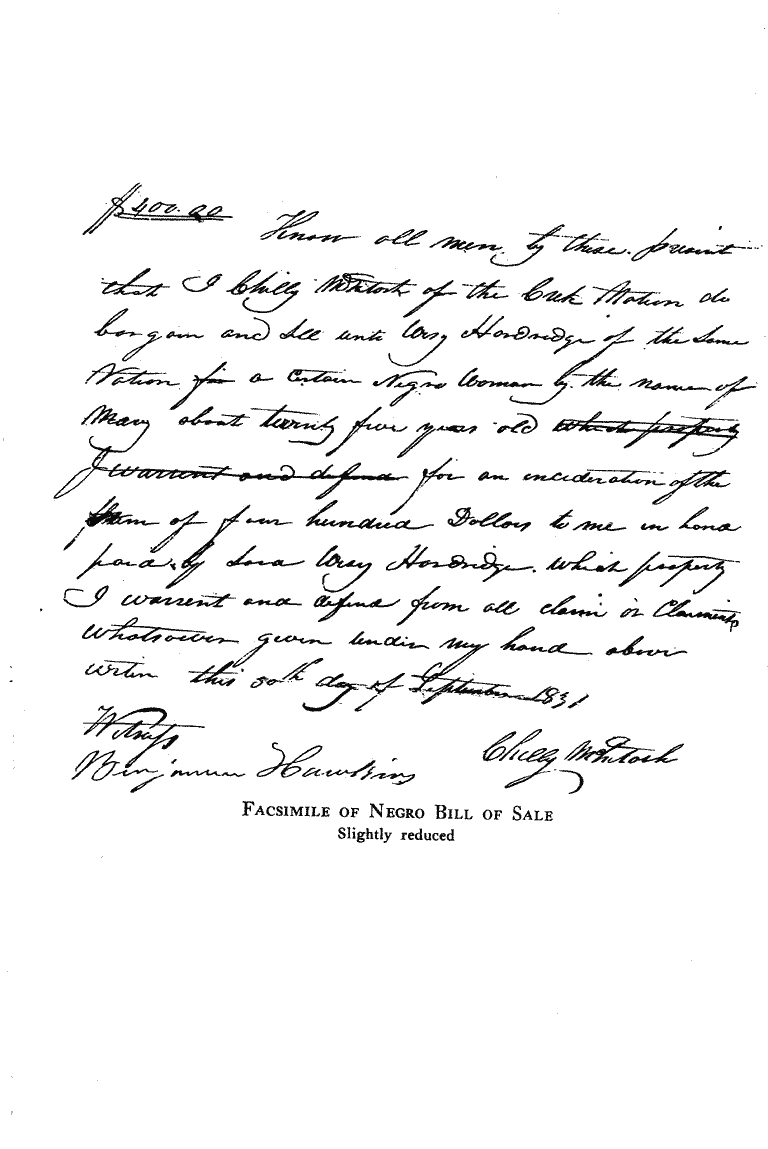 $400.00
Know all men by these present
that I Chilly McIntosh of the Creek Nation do
bargain and sell unto Wesy Hardridge of the Same
Nation for a Certain Negro Woman by the name of
Mary about twenty five years old which property
I warrent and defend for an incideration of the
Sum of four hundred Dollars to me in hand
paid by Said Wesy Hardridge. Which property
I warrent and defend from all claim or Claiments
whatsoever given under my hand above
writen this 30th day of September 1831
Witness
Benjamin Hawkins Chilly McIntosh
FACSIMILE OF NEGRO BILL OF SALE
Slightly reduced